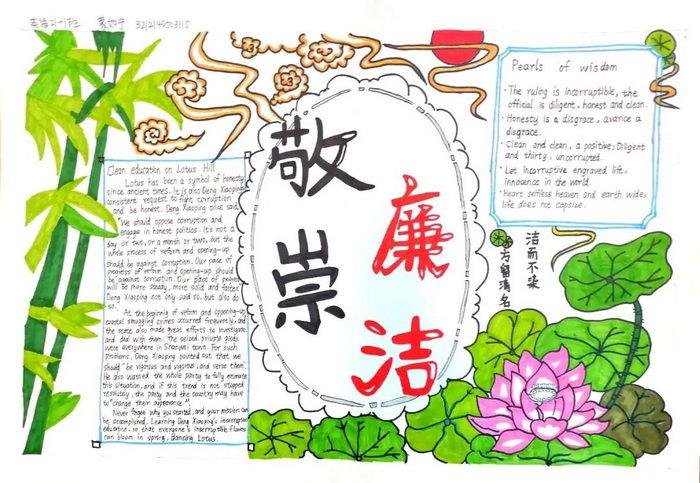 英语21-1班
敬
崇
廉
洁
Clean education on Lotus Hill
Lotus has been a symbol of honesty
since ancient times. It is also Deng Xiaoping's
consistent request to fight corruption
and be honest. Deng Xiaoping once said:
"We should oppose corruption and
engage in honest politics. It's not a
day or two, or a month or two, but the
whole process of reform and opening-up
should be against corruption. Our pace of
progress of reform and opening-up should
be against corruption. Our pace of progress
will be more steady, more solid and faster."
Deng Xiaoping not only said so, but also do
so.
At the beginnig of reform and opening-up
coastal smuggling crimes occurred frequently, and
the sease also made great efforts to investigate
and deal with them. The seized private goods
were everywhere in Shanwei town. For such
problems, Deng Xiaoping pointed out that we
should "be vigorous and vigorous, and serve them".
He also wanted the whole party to fully estimate
this situation, and if this trend is not stopped
resolutely, the party and the country may have
to "change their appearance".
Never forget why you started, and your mission can
be accomplished. Learning Deng Xiaoping's incorruption
education, so that everyone's incorruptible flowers
can bloom in spring, dancing Lotus.
Pearls of wisdom
· The ruling is incorruptible, the
official is diligent, honest and clean.
· Honesty is a disgrace, avarice a
disgrace.
· Clean and clean, a positive; Diligent
and thirty, uncorrupted.
· Let incorruptive engraved life,
innocence in the world.
· Heart selfless heaven and earth wide,
life does not capsize.
洁而不染
方留清名